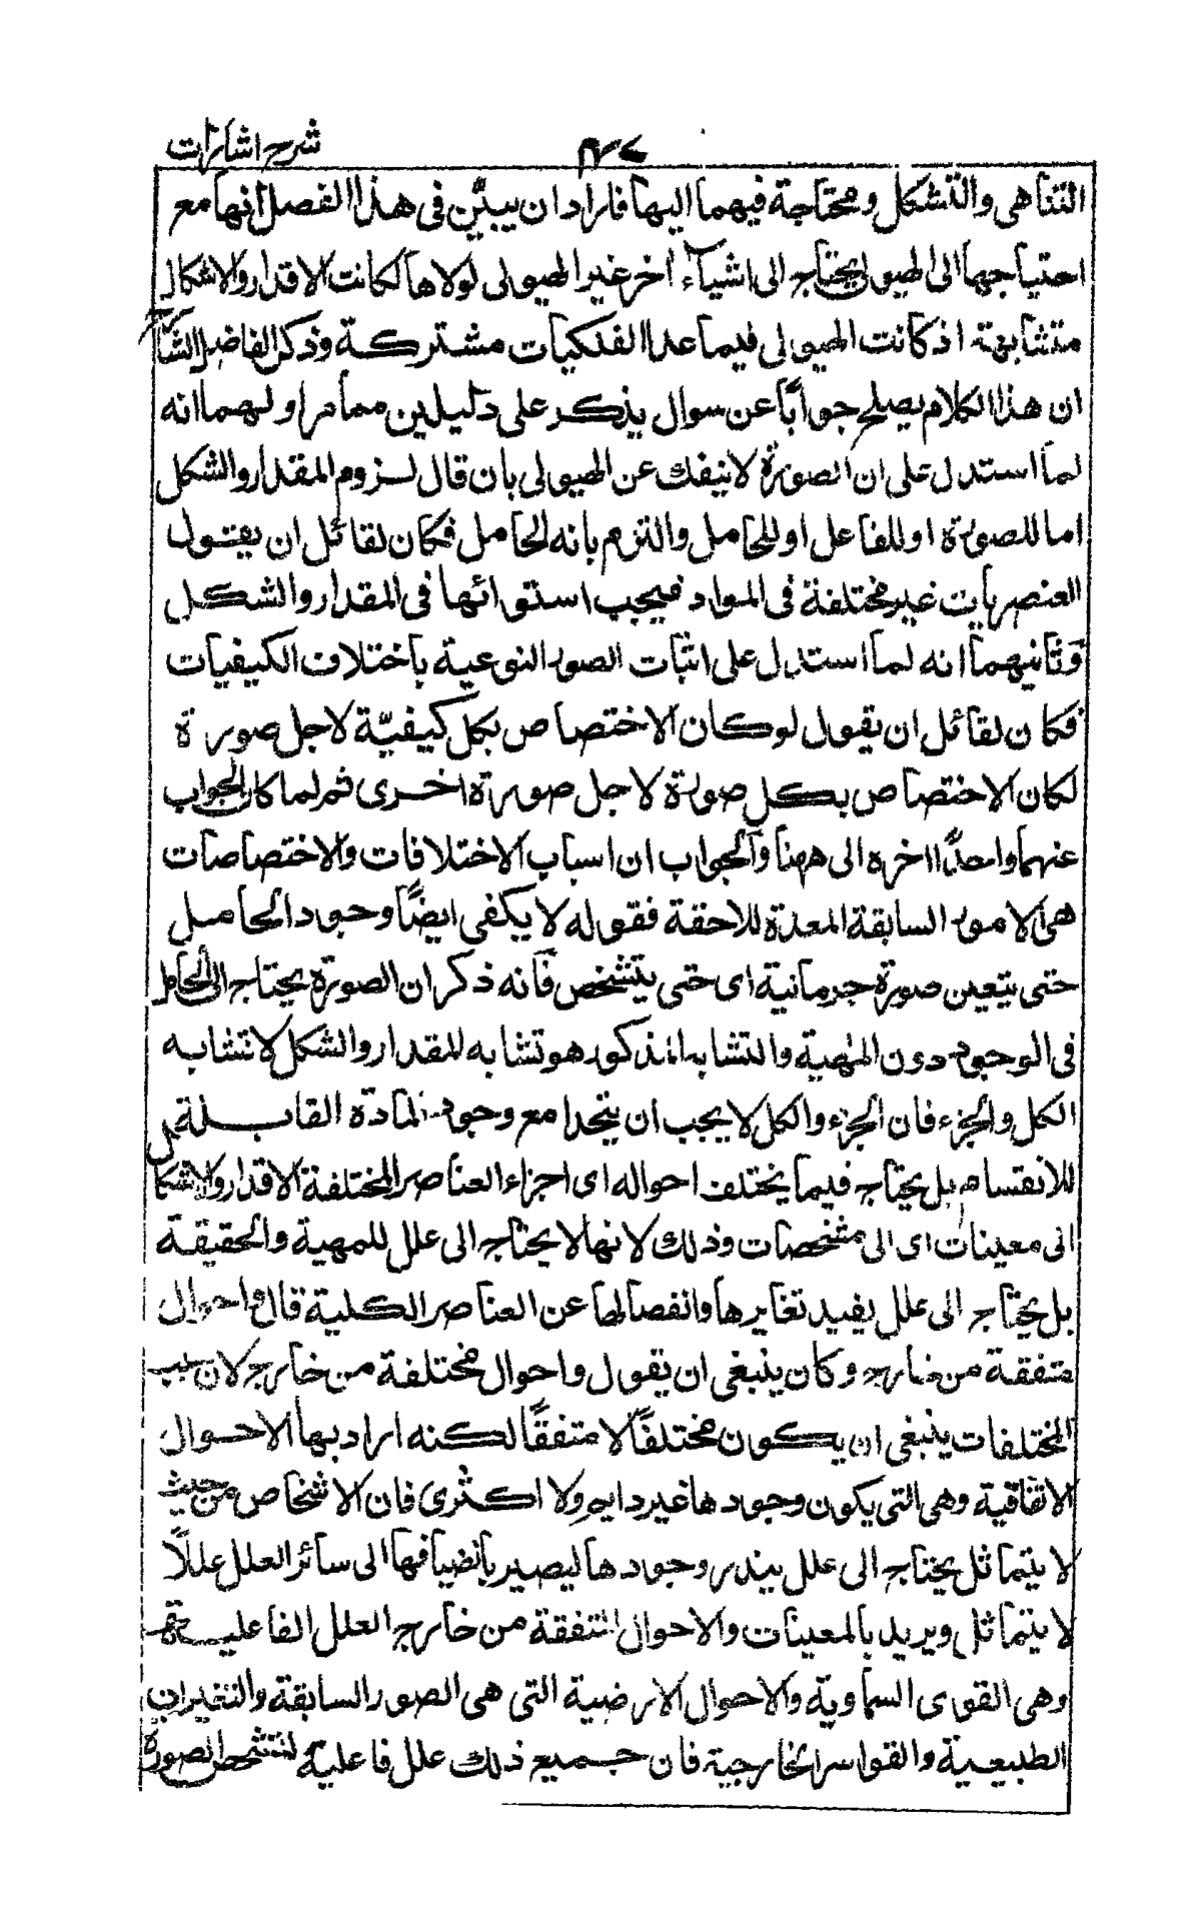 شرح اشارات
التناهى والتشكل ومحتاجة فيهما اليها فاراد ان يبيّن فى هذا الفصل انها مع
احتياجها الى الهيولى يحتاج الى اشيآء اخر غير الهيولى لولاها لكانت الاقدار والاشكال
متشابهة اذ كانت الهيولى فيما عدا الفلكيات مشتركة وذكر الفاضل الشارح
ان هذا الكلام يصلح جوابًا عن سوال يذكر على دليلين مما مر اولهما انه
لما استدل على ان الصورة لا ينفك عن الهيولى بان قال لزوم المقدار والشكل
اما للصورة او للفاعل او للحامل والتزم بانه للحامل فكان لقائل ان يقول
العنصريات غير مختلفة فى المواد فيجب استوائها فى المقدار والشكل
وثانيهما انه لما استدل على اثبات الصور النوعية باختلاف الكيفيات
فكان لقائل ان يقول لو كان الاختصاص بكل كيفيّة لاجل صورة
لكان الاختصاص بكل صورة لاجل صورة اخرى ثم لما كان الجواب
عنهما واحدًا اخره الى ههنا والجواب ان اسباب الاختلافات والاختصاصات
هى الامور السابقة المعدة للاحقة فقوله لا يكفى ايضًا وجود الحامل
حتى يتعين صورة جرمانية اى حتى يتشخص فانه ذكر ان الصورة يحتاج الى الحامل
فى الوجود دون المهية والتشابه المذكور هو تشابه للمقدار والشكل لا تشابه
الكل والجزء فان الجزء والكل لا يجب ان يتحدا مع وجود المادة القابلة
للانقسام بل يحتاج فيما يختلف احواله اى اجزاء العناصر المختلفة الاقدار والاشكال
الى معينات اى الى مشخصات وذلك لانها لا يحتاج الى علل للمهية والحقيقة
بل يحتاج الى علل يفيد تغايرها وانفصالها عن العناصر الكلية قال واحوال
متفقة من خارج وكان ينبغى ان يقول واحوال مختلفة من خارج لان سبب
المختلفات ينبغى ان يكون مختلفًا لا متفقًا لكنه اراد بها الاحوال
الاتفاقية وهى التى يكون وجودها غير دايم ولا اكثرى فان الاشخاص من حيث
لا يتماثل يحتاج الى علل يندر وجودها ليصير بانضيافها الى سائر العلل عللًا
لا يتماثل ويريد بالمعينات والاحوال المتفقة من خارج العلل الفاعلية
وهى القوى السماوية والاحوال الارضية التى هى الصور السابقة والتغيرات
الطبيعية والقواسر الخارجية فان جميع ذلك علل فاعلية لتشخص الصورة